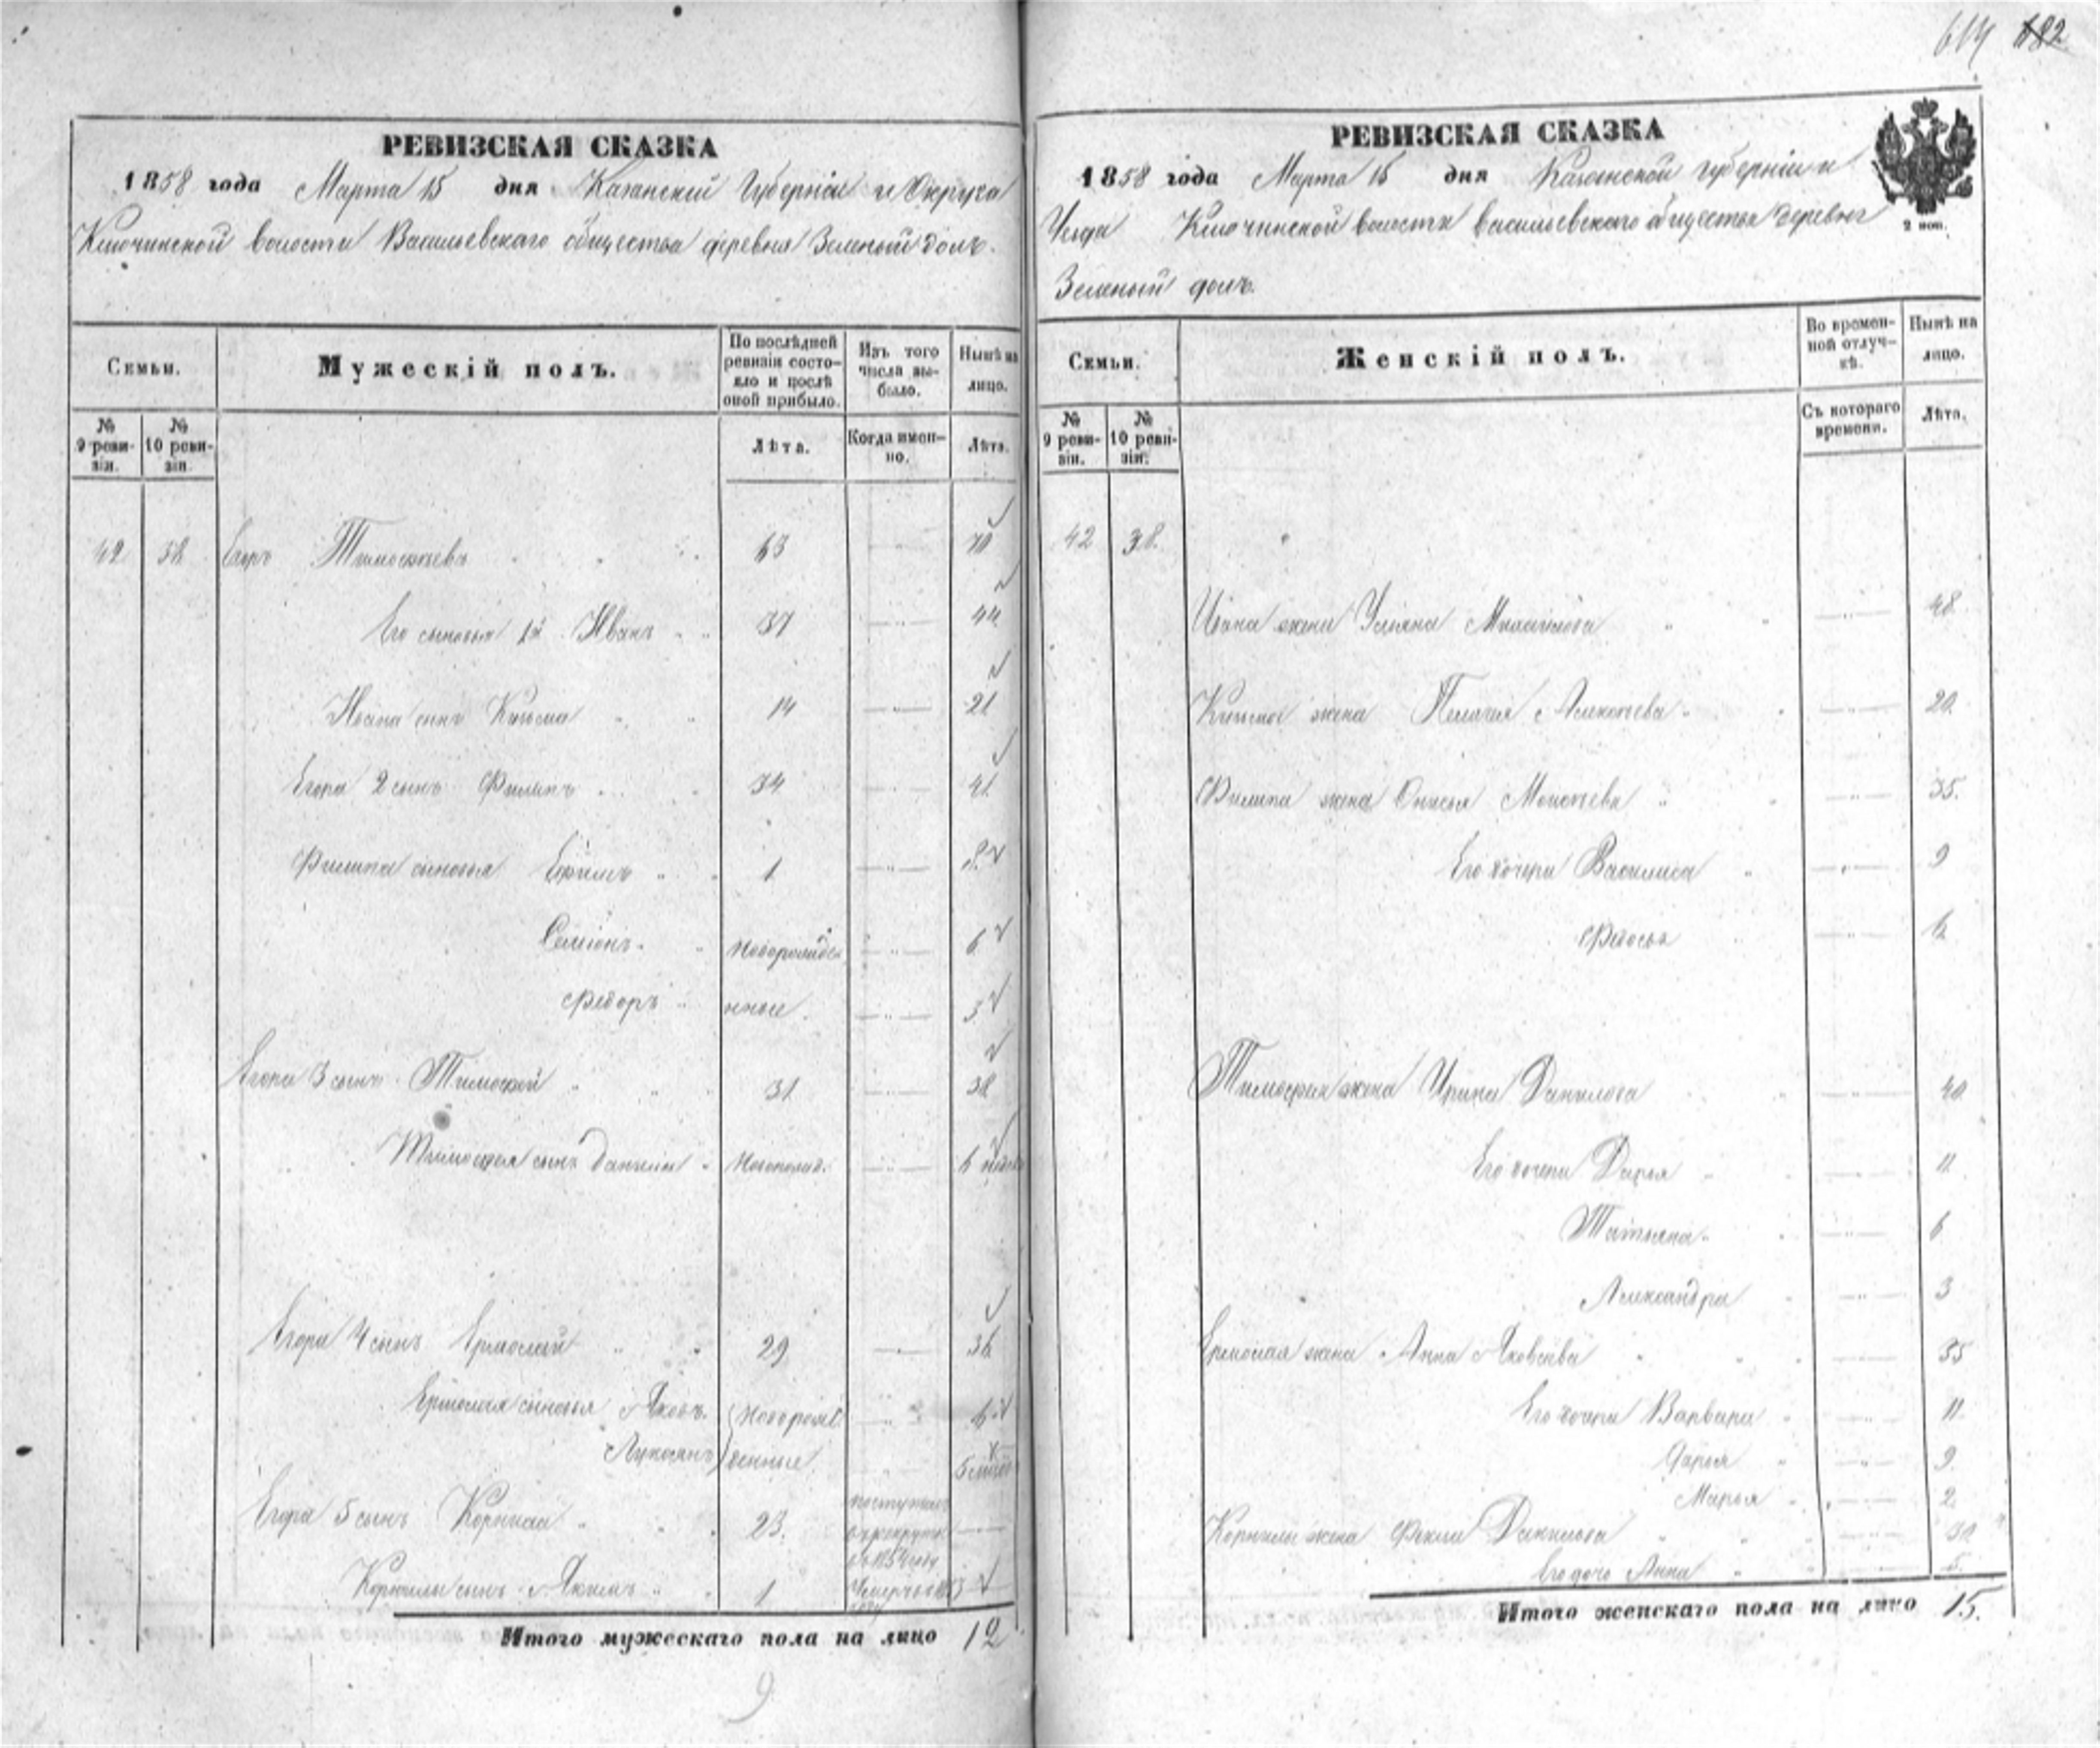 614 182
РЕВИЗСКАЯ СКАЗКА
1858 года Марта 15 дня Казанской Губерніи и Округа
Ключинской волости Васильевскаго общества деревня Зеленый долъ.
Семьи.
Мужескій полъ.
По послѣдней ревизіи состояло и послѣ оной прибыло.
Изъ того числа выбыло.
Нынѣ на лицо.
№ 9 ревизіи.
№ 10 ревизіи.
Лѣта.
Когда именно.
Лѣта.
42 38 Егоръ Тимофѣевъ 63 70
Его сыновья 1й Иванъ 37 44
Ивана сынъ Кузьма 14 21
Егора 2 сынъ Филипъ 34 41
Филипа сыновья Ефимъ 1 8
Семіонъ Новорожде 6
Федоръ нные 3
Егора 3 сынъ Тимофей 31 38
Тимофея сынъ Данила Новорожд. 6
Егора 4 сынъ Ермолай 29 36
Ермолая сыновья Яковъ Новорожд 6
Лукоянъ денные 5
Егора 5 сынъ Корнилай 23. поступилъ в рекруты в 1854 году
Корнилы сынъ Якимъ 1
Итого мужескаго пола на лицо 12
9
РЕВИЗСКАЯ СКАЗКА
1858 года Марта 15 дня Казанской губерніи и
Уезда Ключинской волости васильевскаго общества деревни
Зеленый долъ.
2 коп.
Семьи.
Женскій полъ.
Во временной отлучкѣ.
Нынѣ на лицо.
№ 9 ревизіи.
№ 10 ревизіи.
Съ котораго времени.
Лѣта.
42 38.
Ивана жена Ульяна Михайлова 48
Кузьмы жена Пелагея Алексѣева 20.
Филипа жена Онисья Моисѣева 35.
Его дочери Василиса 9
Федосья 6
Тимофея жена Ирина Данилова 40
Его дочери Дарья 11
Татьяна 6
Александра 3
Ермолая жена Анна Яковлева 35
Его дочери Варвара 11
Дарья 9
Марья 2
Корнилы жена Фекла Данилова 30
Его дочь Анна 5
Итого женскаго пола на лицо 15.